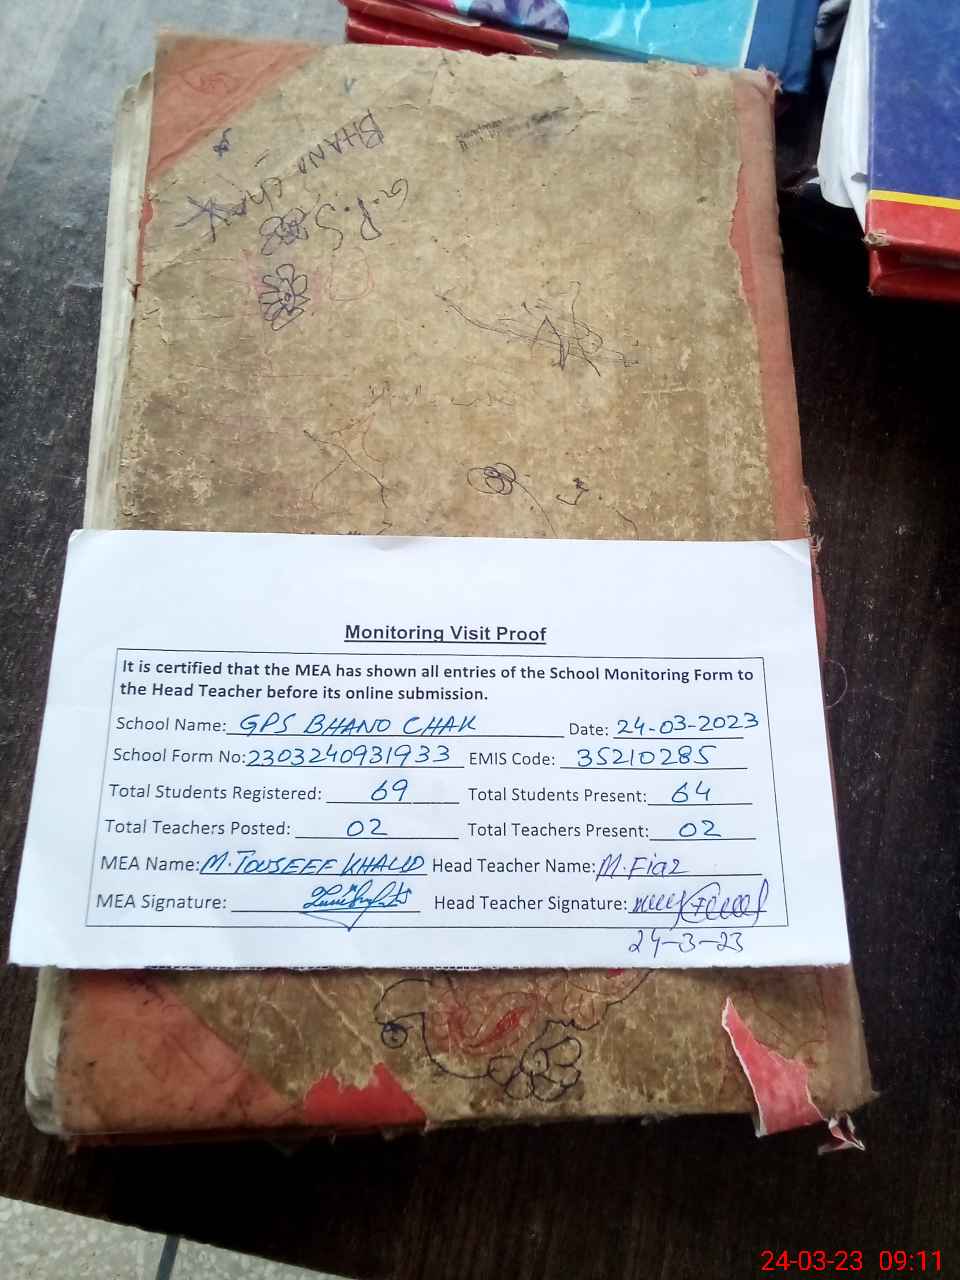 BHANO CHAK
G.P.S
Monitoring Visit Proof
It is certified that the MEA has shown all entries of the School Monitoring Form to
the Head Teacher before its online submission.
School Name: GPS BHANO CHAK Date: 24-03-2023
School Form No: 2303240931933 EMIS Code: 35210285
Total Students Registered: 69 Total Students Present: 64
Total Teachers Posted: 02 Total Teachers Present: 02
MEA Name: M. TOUSEEF KHALID Head Teacher Name: M. Fiaz
MEA Signature: Head Teacher Signature:
24-3-23
24-03-23 09:11